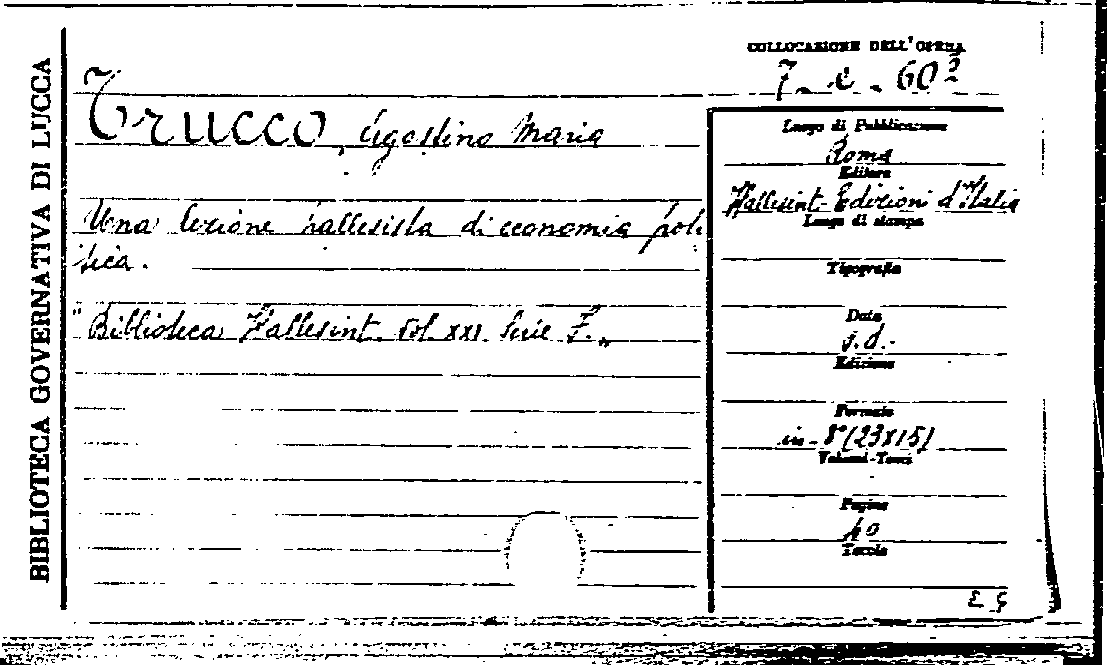 BIBLIOTECA GOVERNATIVA DI LUCCA
COLLOCAZIONE DELL'OPERA
7. e. 60
Trucco, Agostino Maria
Una lezione hallesista di economia poli
tica.
"Biblioteca Hallesint. Vol. XXI. Serie F.„
Luogo di Pubblicazione
Roma
Editore
Hallesint-Edizioni d'Italia
Luogo di stampa
Tipografia
Data
s.d.
Edizione
Formato
in-8°(23x15)
Volumi-Tomi
Pagine
40
Tavole